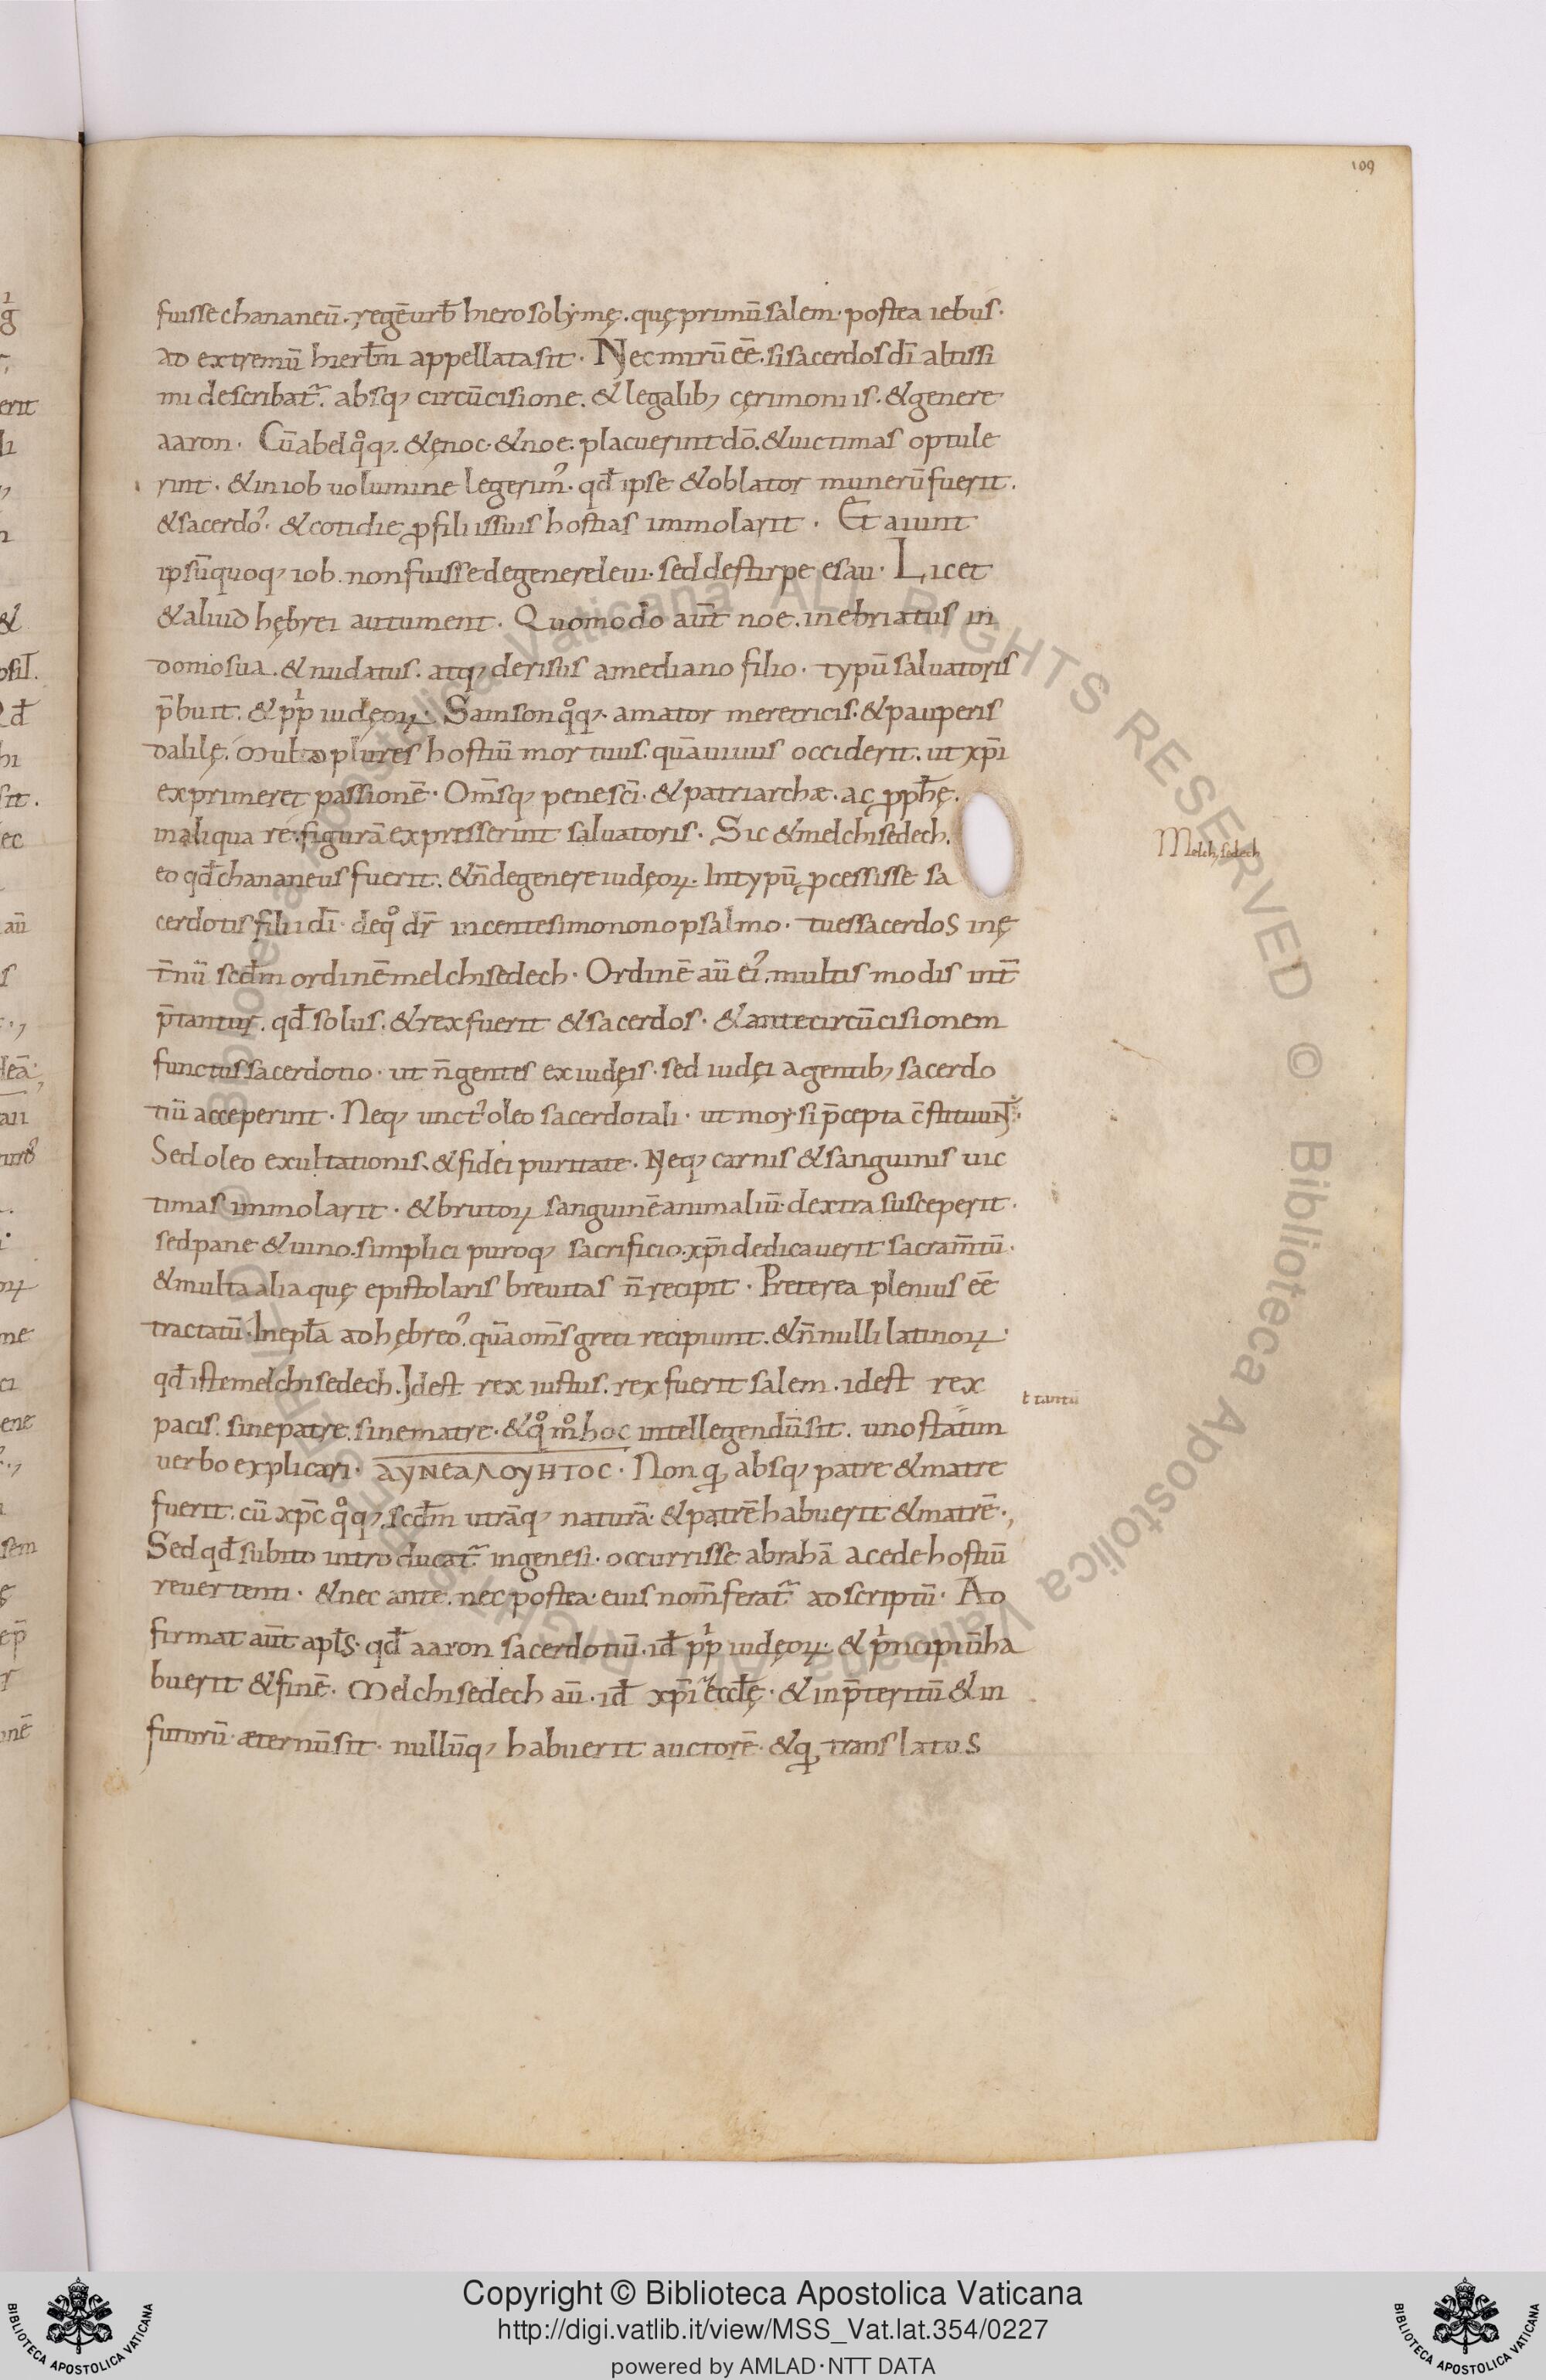 109
fuisse chananeū. regē urb̄ hierosolymę. quę primū salem. postea iebus.
ad extremū hierlm̄ appellata sit. Nec mirū eē. si sacerdos dī altissi
mi describat᷑. absq; circūcisione. & legalib; cęrimoniis. & genere
aaron. Cū abel qͦq;. & ęnoc. & noe. placuerint dō. & uictimas optule
rint. & in iob uolumine legerim᾿. qd̄ ipse & oblator munerū fuerit.
& sacerdo᾿. & cotidie ꝓ filiis suis hostias immolarit. Et aiunt
ipsū quoq; iob. non fuisse de genere leui. sed de stirpe esau. Licet
& aliud hębrei autument. Quomodo aūt noe. inebriatus in
domo sua. & nudatus. atq; derisus a mediano filio. typū saluatoris
p̄buit. & pṗp iudęoꝝ. Samson qͦq;. amator meretricis. & pauperis
dalilę. Multo plures hostiū mortuus. quā uiuus occiderit. ut xp̄i
exprimeret passionē. Om̄sq; pene sc̄i. & patriarchæ. ac ꝓph̄ę.
in aliqua re. figurā expresserint saluatoris. Sic & melchisedech.
Melchisedech
eo qd̄ chananeus fuerit. & n̄ de genere iudęoꝝ. In typū p̨cessisse sa
cerdotis filii dī. de qͦ dr̄ in centesimo nono psalmo. tu es sacerdos in ę
t̄nū scdm̄ ordinē melchisedech. Ordinē aū ei᾿. multis modis int̄
p̄tantur. qd̄ solus. & rex fuerit & sacerdos. & ante circūcisionem
functus sacerdotio. ut n̄ gentes ex iudęis. sed iudęi a gentib; sacerdo
tiū acceperint. Neq; unct᾿ oleo sacerdotali. ut moysi p̄cepta c̄stituunt.
Sed oleo exultationis. & fidei puritate. Neq; carnis & sanguinis uic
timas immolarit. & brutoꝝ sanguinē animaliū. dextra susceperit.
sed pane & uino. simplici puroq; sacrificio. xp̄i dedicauerit sacram̄tū.
& multa alia quę epistolaris breuitas n̄ recipit. Preterea plenius eē
tractatū. In epl̄a ad hębreo᾿. quā om̄s greci recipiunt. & n̄nulli latinoꝝ.
qd̄ iste melchisedech. Idest rex iustus. rex fuerit salem. idest rex
ł tantū
pacis. sine patre. sine matre. & qͦ mͦ hoc intellegendū sit. uno statim
uerbo explicari. ΑΥΝЄΑΛΟΥΗΤΟC. Non q̨ absq; patre & matre
fuerit. cū xp̄c qͦq;. scdm̄ utrāq; naturā. & patrē habuerit & matrē.
Sed qd̄ subito introducat᷑ in genesi. occurrisse abrahā a cede hostiū
reuertenti. & nec ante. nec postea. eius nom̄ ferat᷑ adscriptū. Ad
firmat aūt apl̄s. qd̄ aaron sacerdotiū. id̄ pṗp iudęoꝝ. & pͥncipiū ha
buerit & finē. Melchisedech aū. id̄ xp̄i & eccl̄ę. & in p̄teritū & in
futurū. æternū sit. nullūq; habuerit auctorē. & q̨ translatus
Biblioteca Apostolica Vaticana ALL RIGHTS RESERVED © Biblioteca Apostolica Vaticana
Copyright © Biblioteca Apostolica Vaticana
http://digi.vatlib.it/view/MSS_Vat.lat.354/0227
powered by AMLAD·NTT DATA
BIBLIOTECA APOSTOLICA VATICANA
BIBLIOTECA APOSTOLICA VATICANA